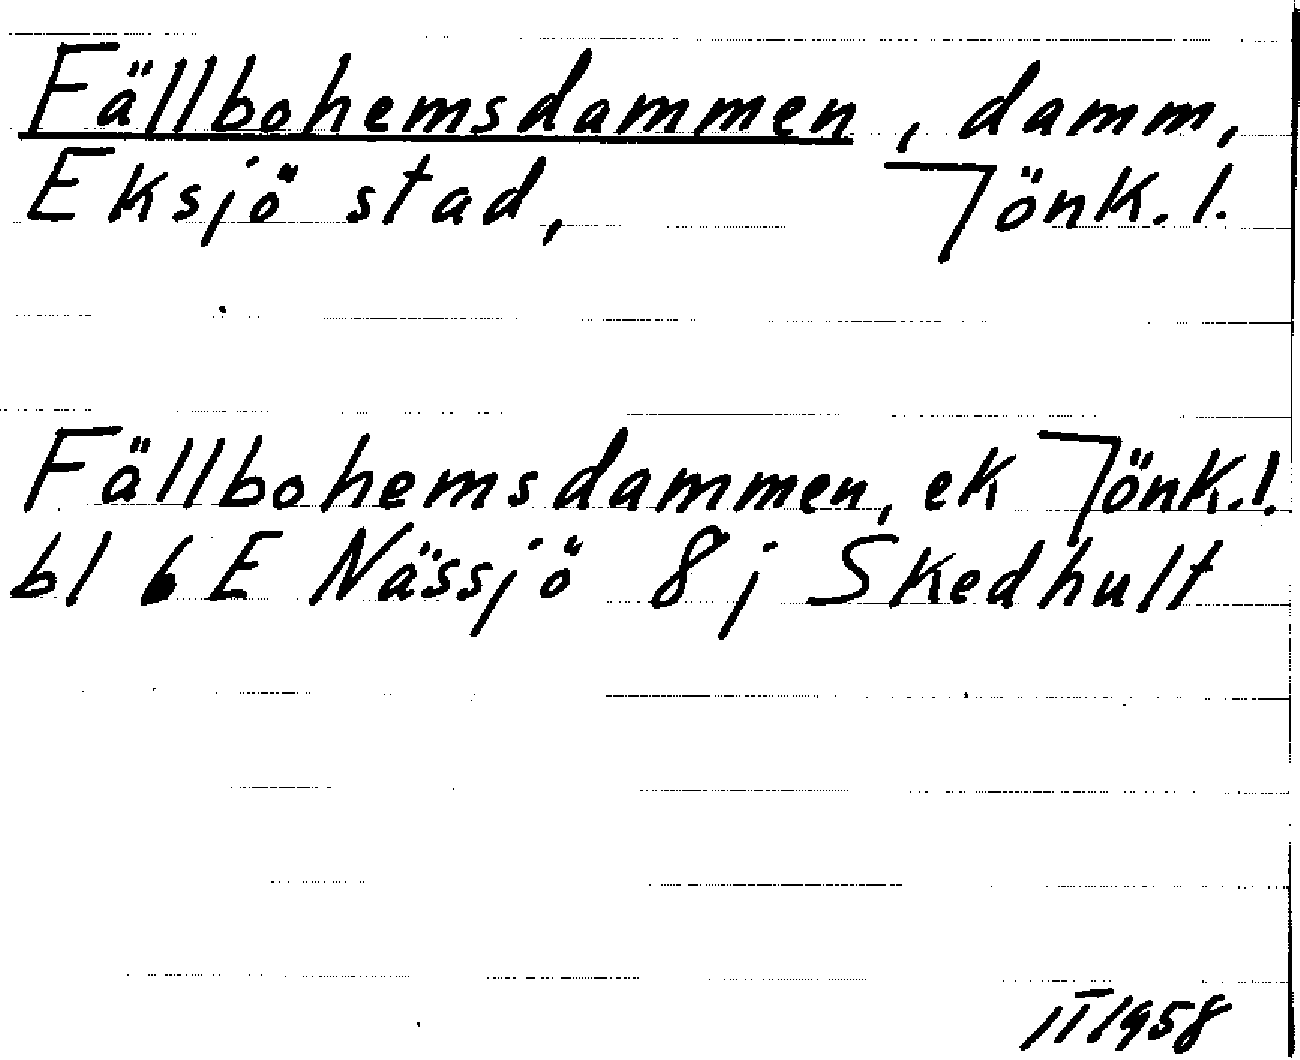 Fällbohemsdammen, damm,
Eksjö stad, Jönk.l.
Fällbohemsdammen, ek Jönk.l.
bl 6 E Nässjö 8 j Skedhult
1958